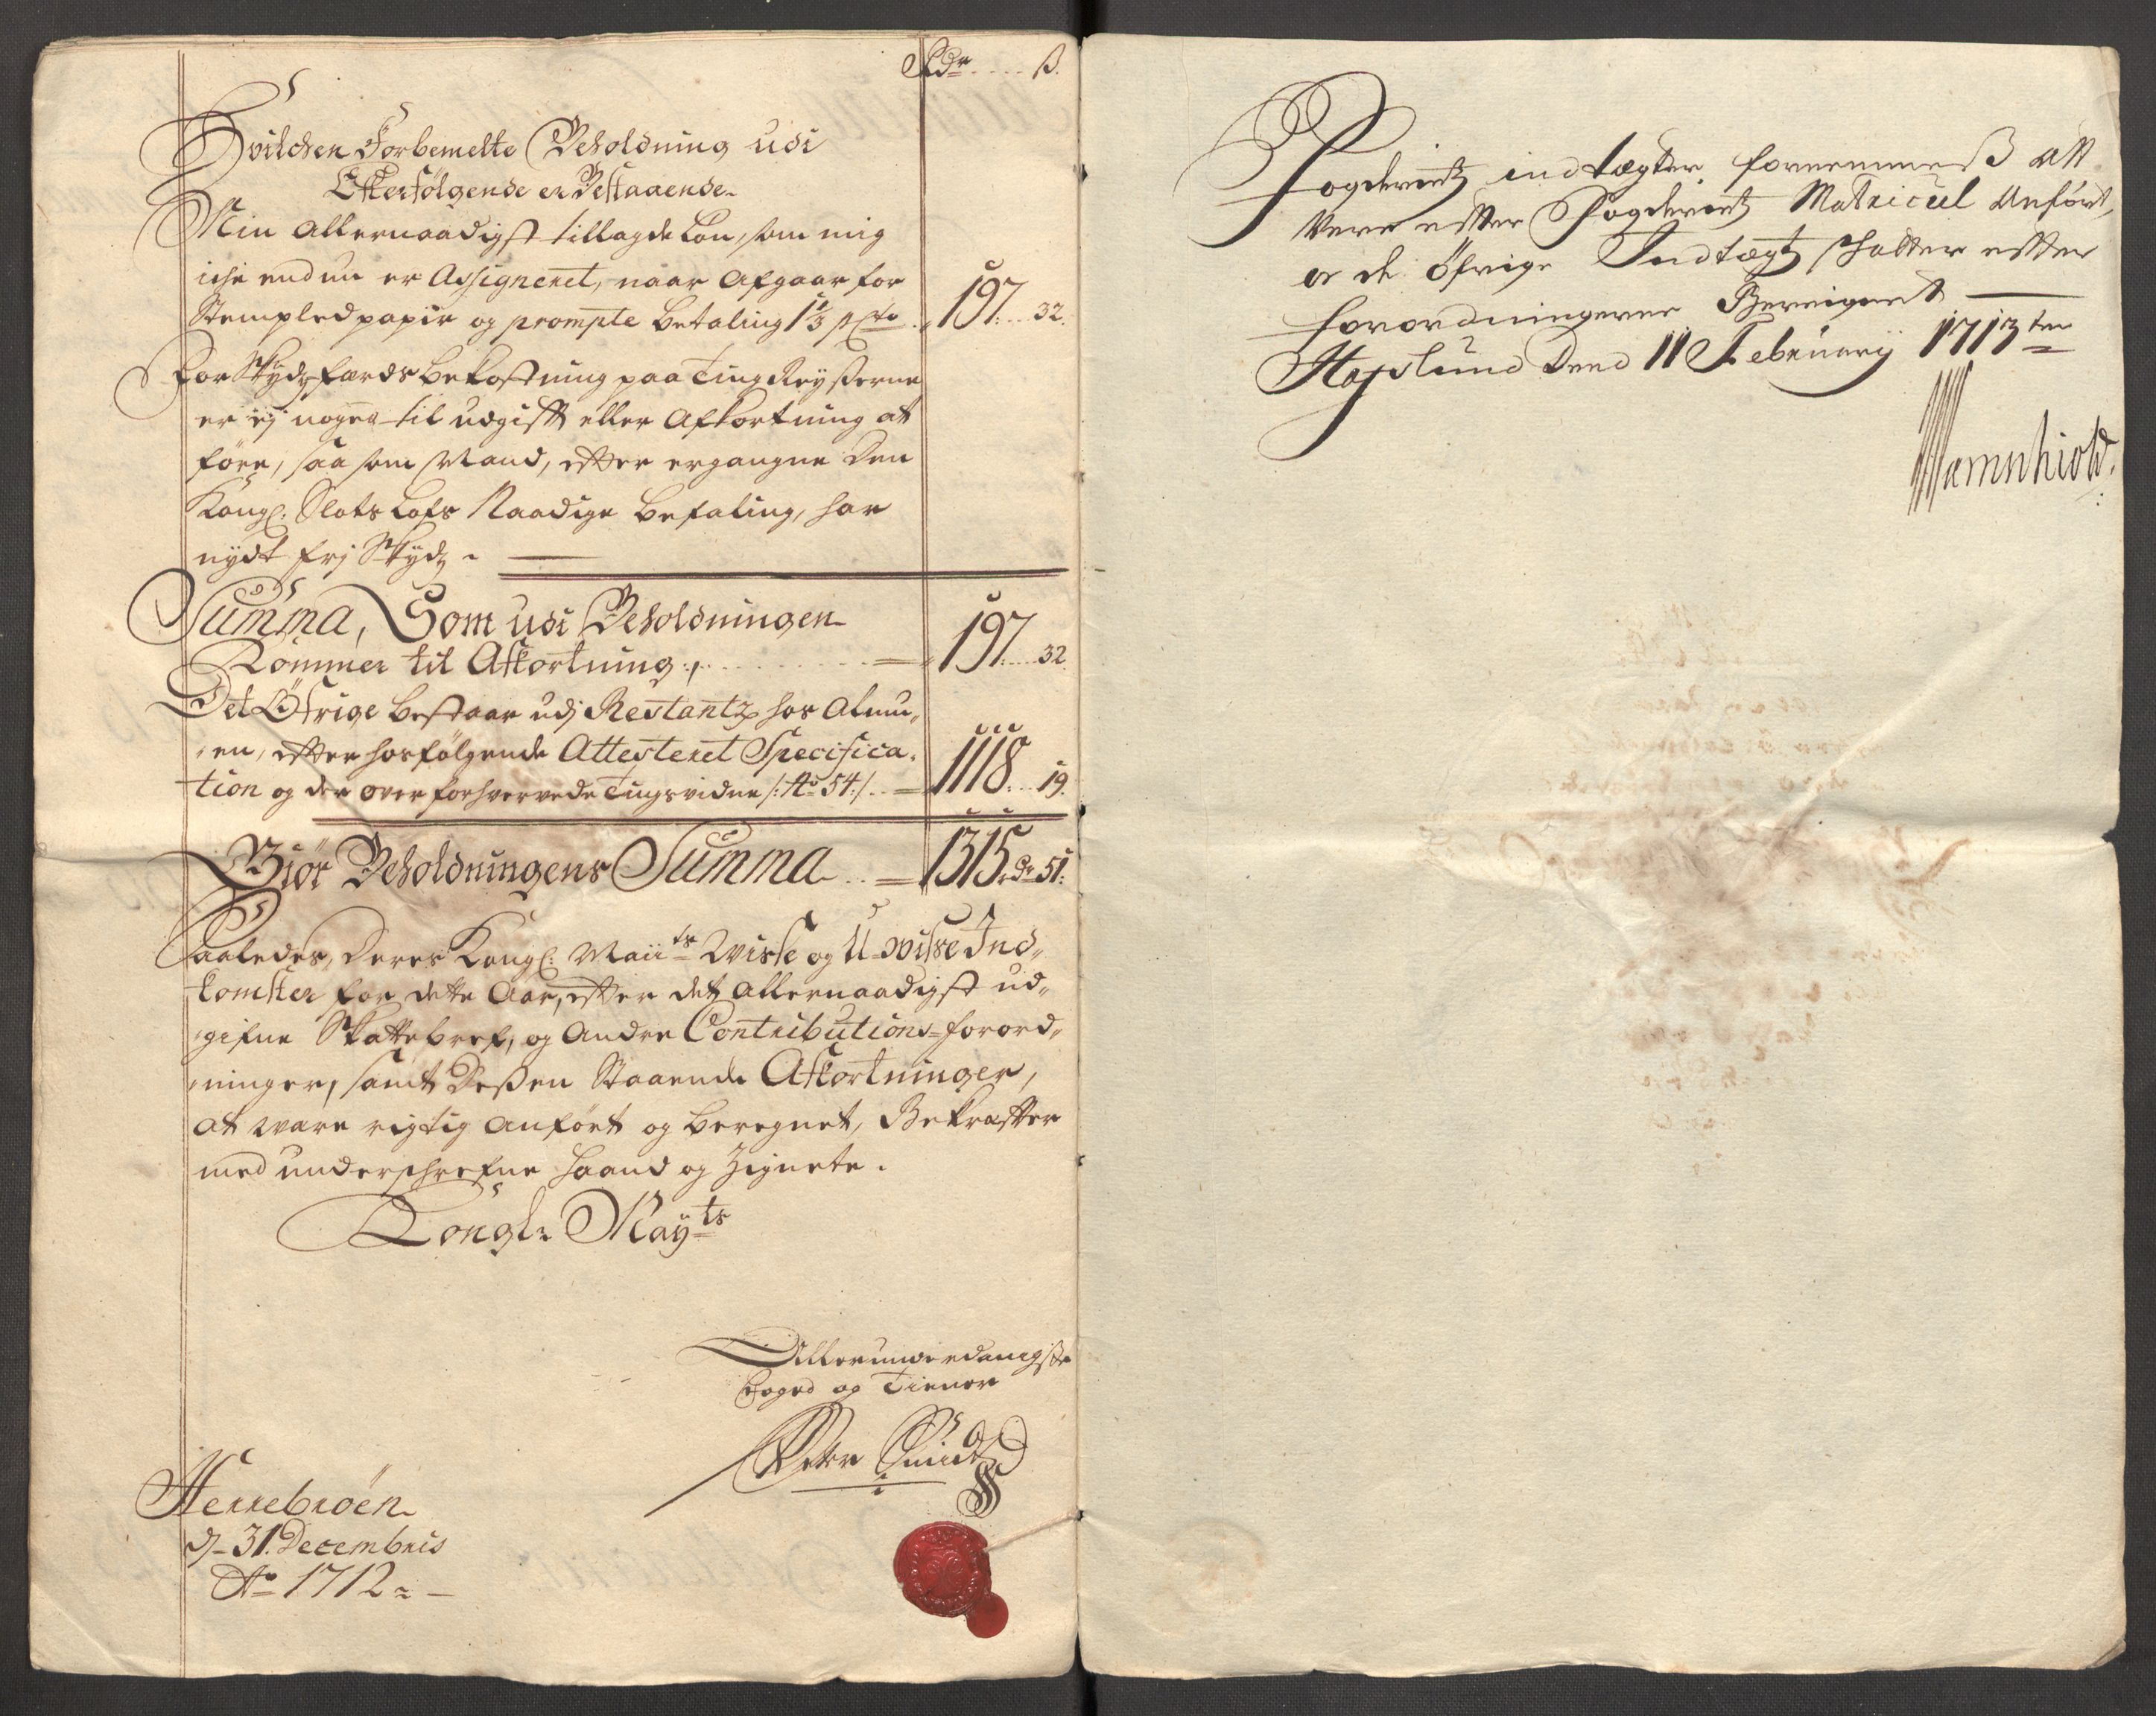 Rdr ..... ß.
Hvilchen Forbemelte Beholdning udi
Efterfølgende er Bestaaende
Min Allernaadigst tillagde Løn, som mig
iche endnu er Assigneret, naar Afgaar for
Stempled papir og prompte Betaling 1⅓ pCto .. 197 ... 32.
For Skydsfærds Bekostning paa Ting Reyserne
er ej nogen til udgift eller Afkortning at
føre, saa som Mand, efter ergangne Den
Kongl: Slots Lofs Naadige Befaling, har
nydt frj Skyds.
Summa, Som udi Beholdningen
Kommer til Afkortning ........ 197 .... 32
Det Øfrige Bestaar udj Restantz hos Almu„
„en, efter hosfølgende Attesteret Specifica„
tion og der over forhvervede Tingsvidne /: No 54:/ .. 1118 ... 19.
Giør Beholdningens Summa .. 1315 dr 51:
Saaledes, Deres Kongl: Maiits Wisse og U-wisse Ind„
komster for dette Aar, efter det allernaadigst ud„
„gifne Skattebref, og Andre Contributions-forord„
„ninger, samt Dessen Staaende Afkortninger,
at være rigtig Anført og Beregnet, Bekræfter
med underschrefne Haand og Zignete.
Kongl. Mayts
Allerunderdanigste
Foged og Tiener
Peter Smidt
Herrebrøen
d. 31. Decembris
Ao 1712
Fogderietz indtægter fornemmes att
Vere efter Fogderietz Matricul Anført,
og de Øfrige Indtægtz schatter efter
forordningerne Bereignet
Hafslund Dend 11 February 1713ten
Wærnschiold.